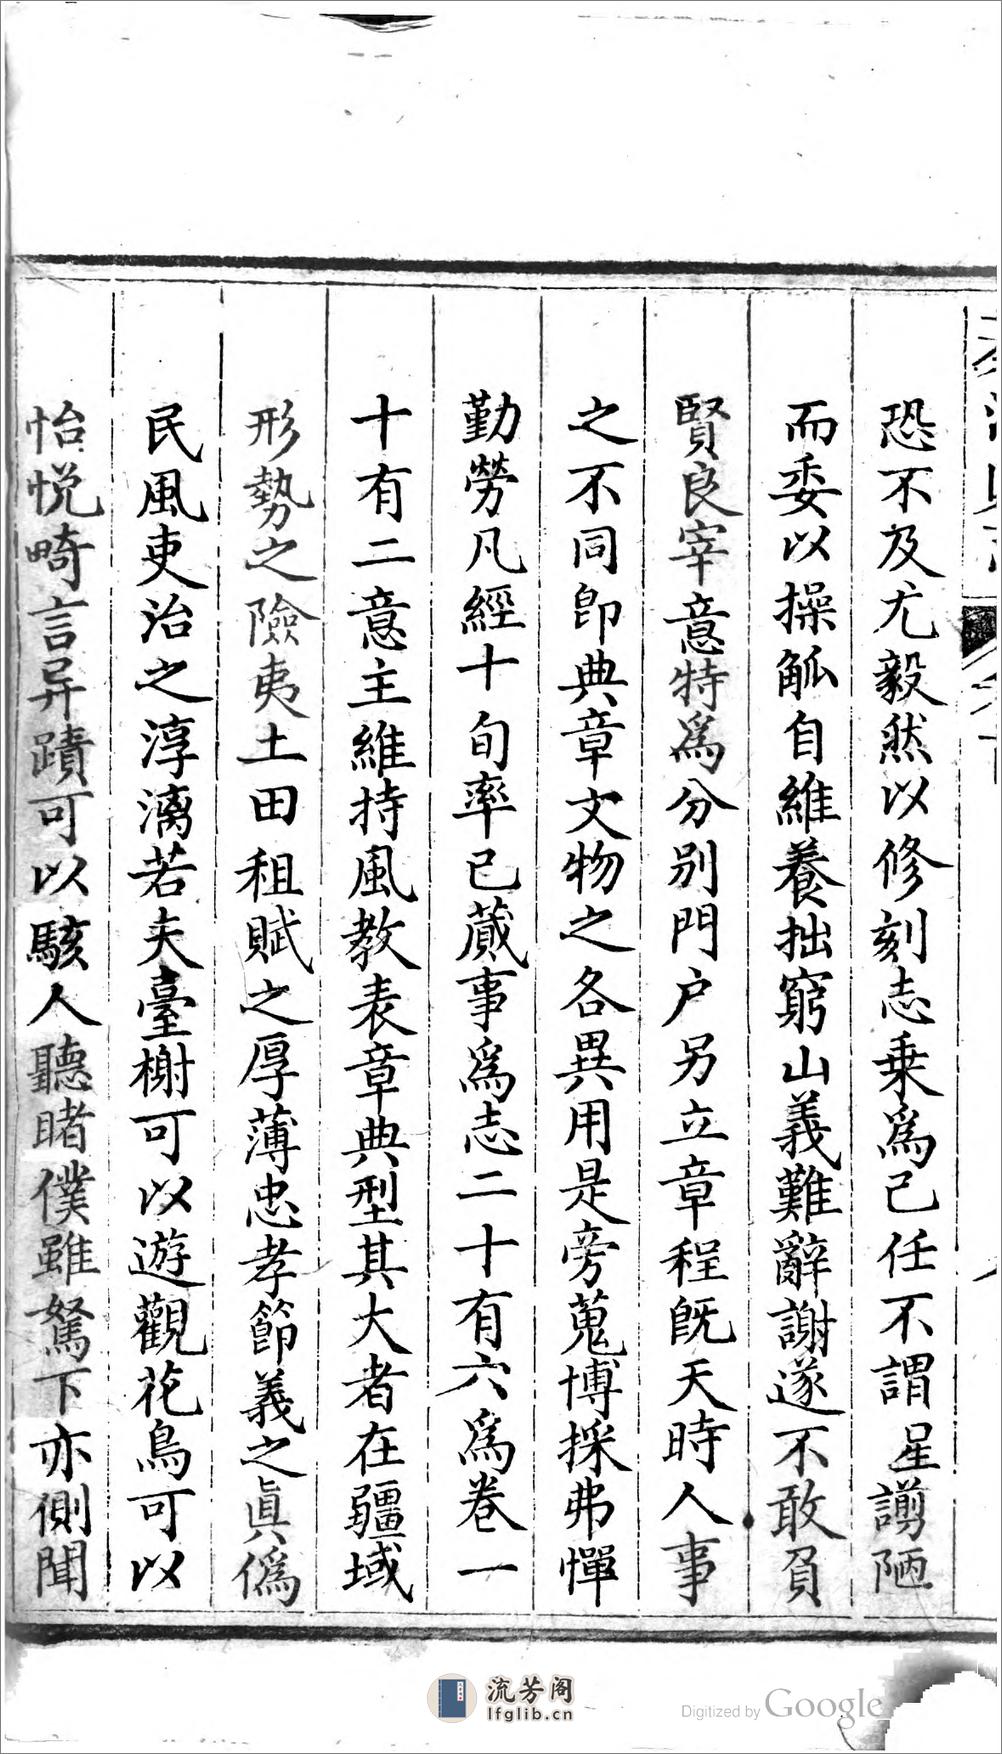 恐不及尤毅然以修刻志乗爲己任不謂星謭陋
而委以操觚自維養拙窮山義難辭謝遂不敢負
賢良宰意特爲分別門户另立章程旣天時人事
之不同卽典章文物之各異用是旁蒐博採弗憚
勤勞凡經十旬率已蕆事爲志二十有六爲卷一
十有二意主維持風教表章典型其大者在疆域
形勢之險夷土田租賦之厚薄忠孝節義之眞僞
民風吏治之淳漓若夫臺榭可以遊觀花鳥可以
怡悦畸言异蹟可以駭人聽睹僕雖駑下亦側聞
流芳阁
lfglib.cn
Digitized by Google